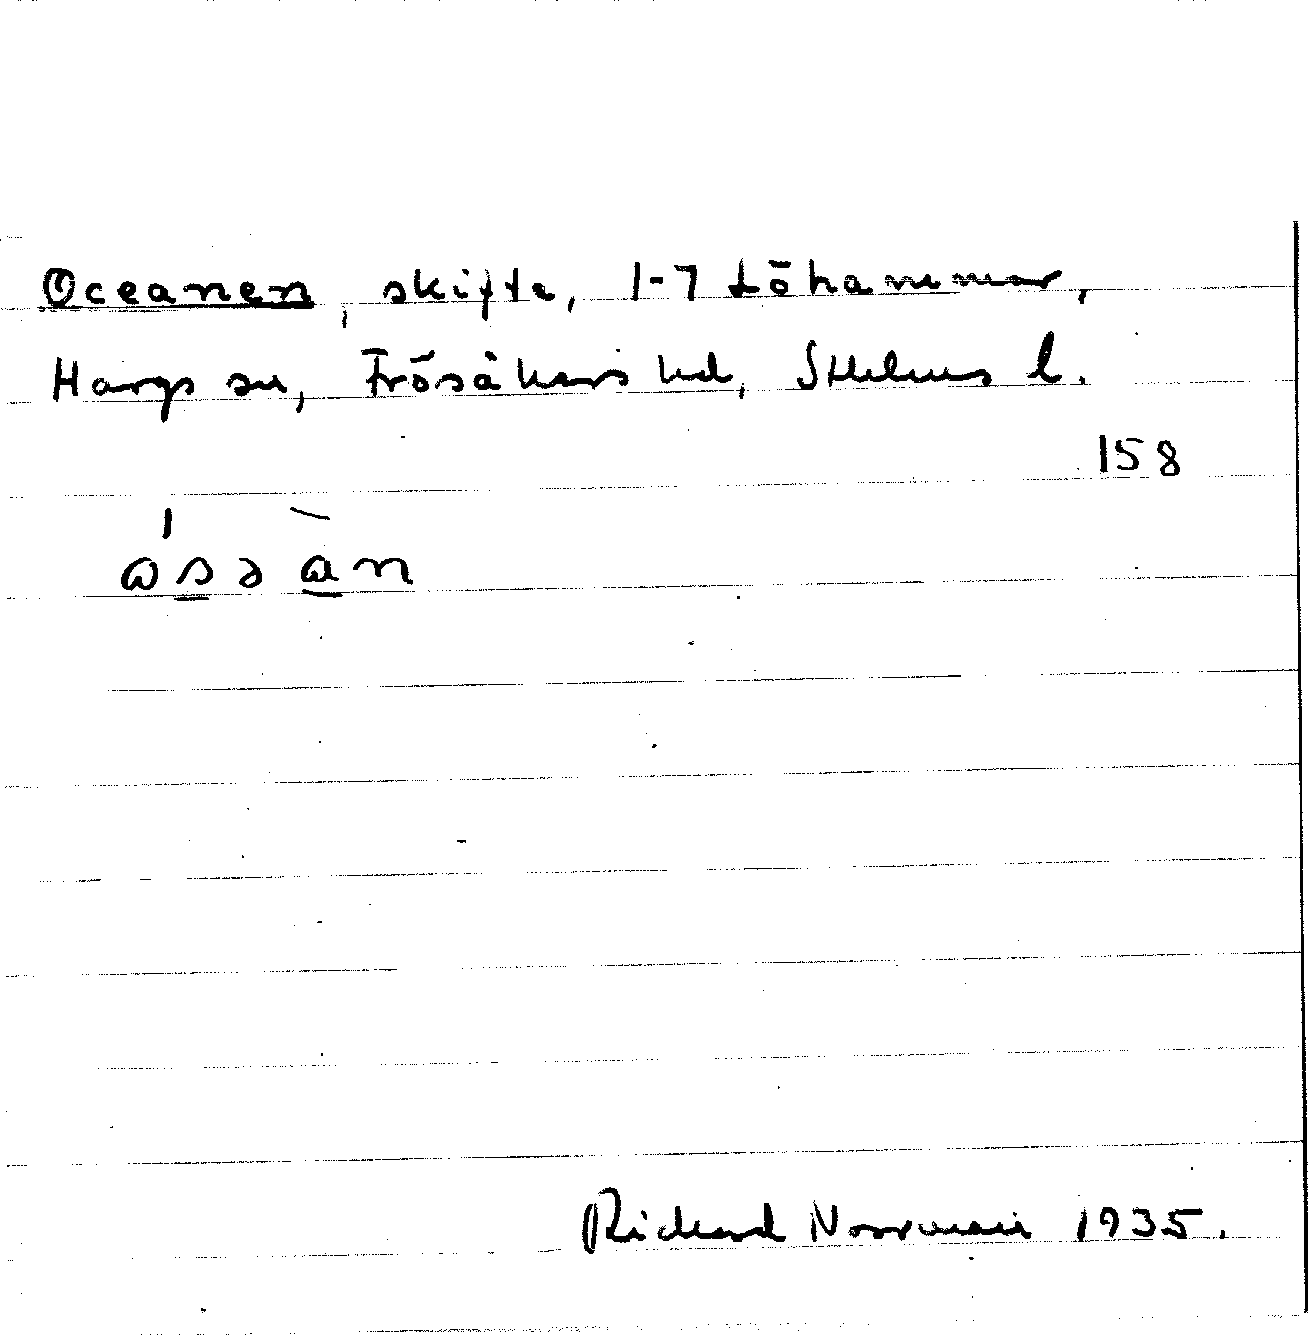 Oceanen, skifte, 1-7 Löhammar,
Hargs sn, Frösåkers hd, Sthlms l.
158
ɷsəan
Richard Norrman 1935.